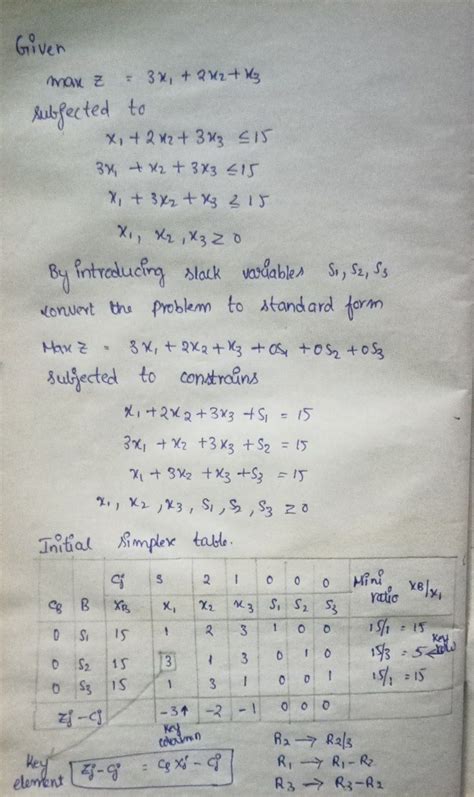 Given
max z = 3x₁ + 2x₂ + x₃
subjected to
x₁ + 2x₂ + 3x₃ ≤ 15
3x₁ + x₂ + 3x₃ ≤ 15
x₁ + 3x₂ + x₃ ≥ 15
x₁, x₂, x₃ ≥ 0
By introducing slack variables S₁, S₂, S₃
convert the problem to standard form
Max Z = 3x₁ + 2x₂ + x₃ + 0S₁ + 0S₂ + 0S₃
subjected to constrains
x₁ + 2x₂ + 3x₃ + S₁ = 15
3x₁ + x₂ + 3x₃ + S₂ = 15
x₁ + 3x₂ + x₃ + S₃ = 15
x₁, x₂, x₃, S₁, S₂, S₃ ≥ 0
Initial simplex table.
Cj 3 2 1 0 0 0 Mini ratio XB/x₁
CB B XB x₁ x₂ x₃ S₁ S₂ S₃
0 S₁ 15 1 2 3 1 0 0 15/1 = 15
0 S₂ 15 3 1 3 0 1 0 15/3 = 5 ← key row
0 S₃ 15 1 3 1 0 0 1 15/1 = 15
Zj - Cj -3↑ -2 -1 0 0 0
key column
key element
Zj - Cj = CB Xj - Cj
R₂ → R₂/3
R₁ → R₁ - R₂
R₃ → R₃ - R₂